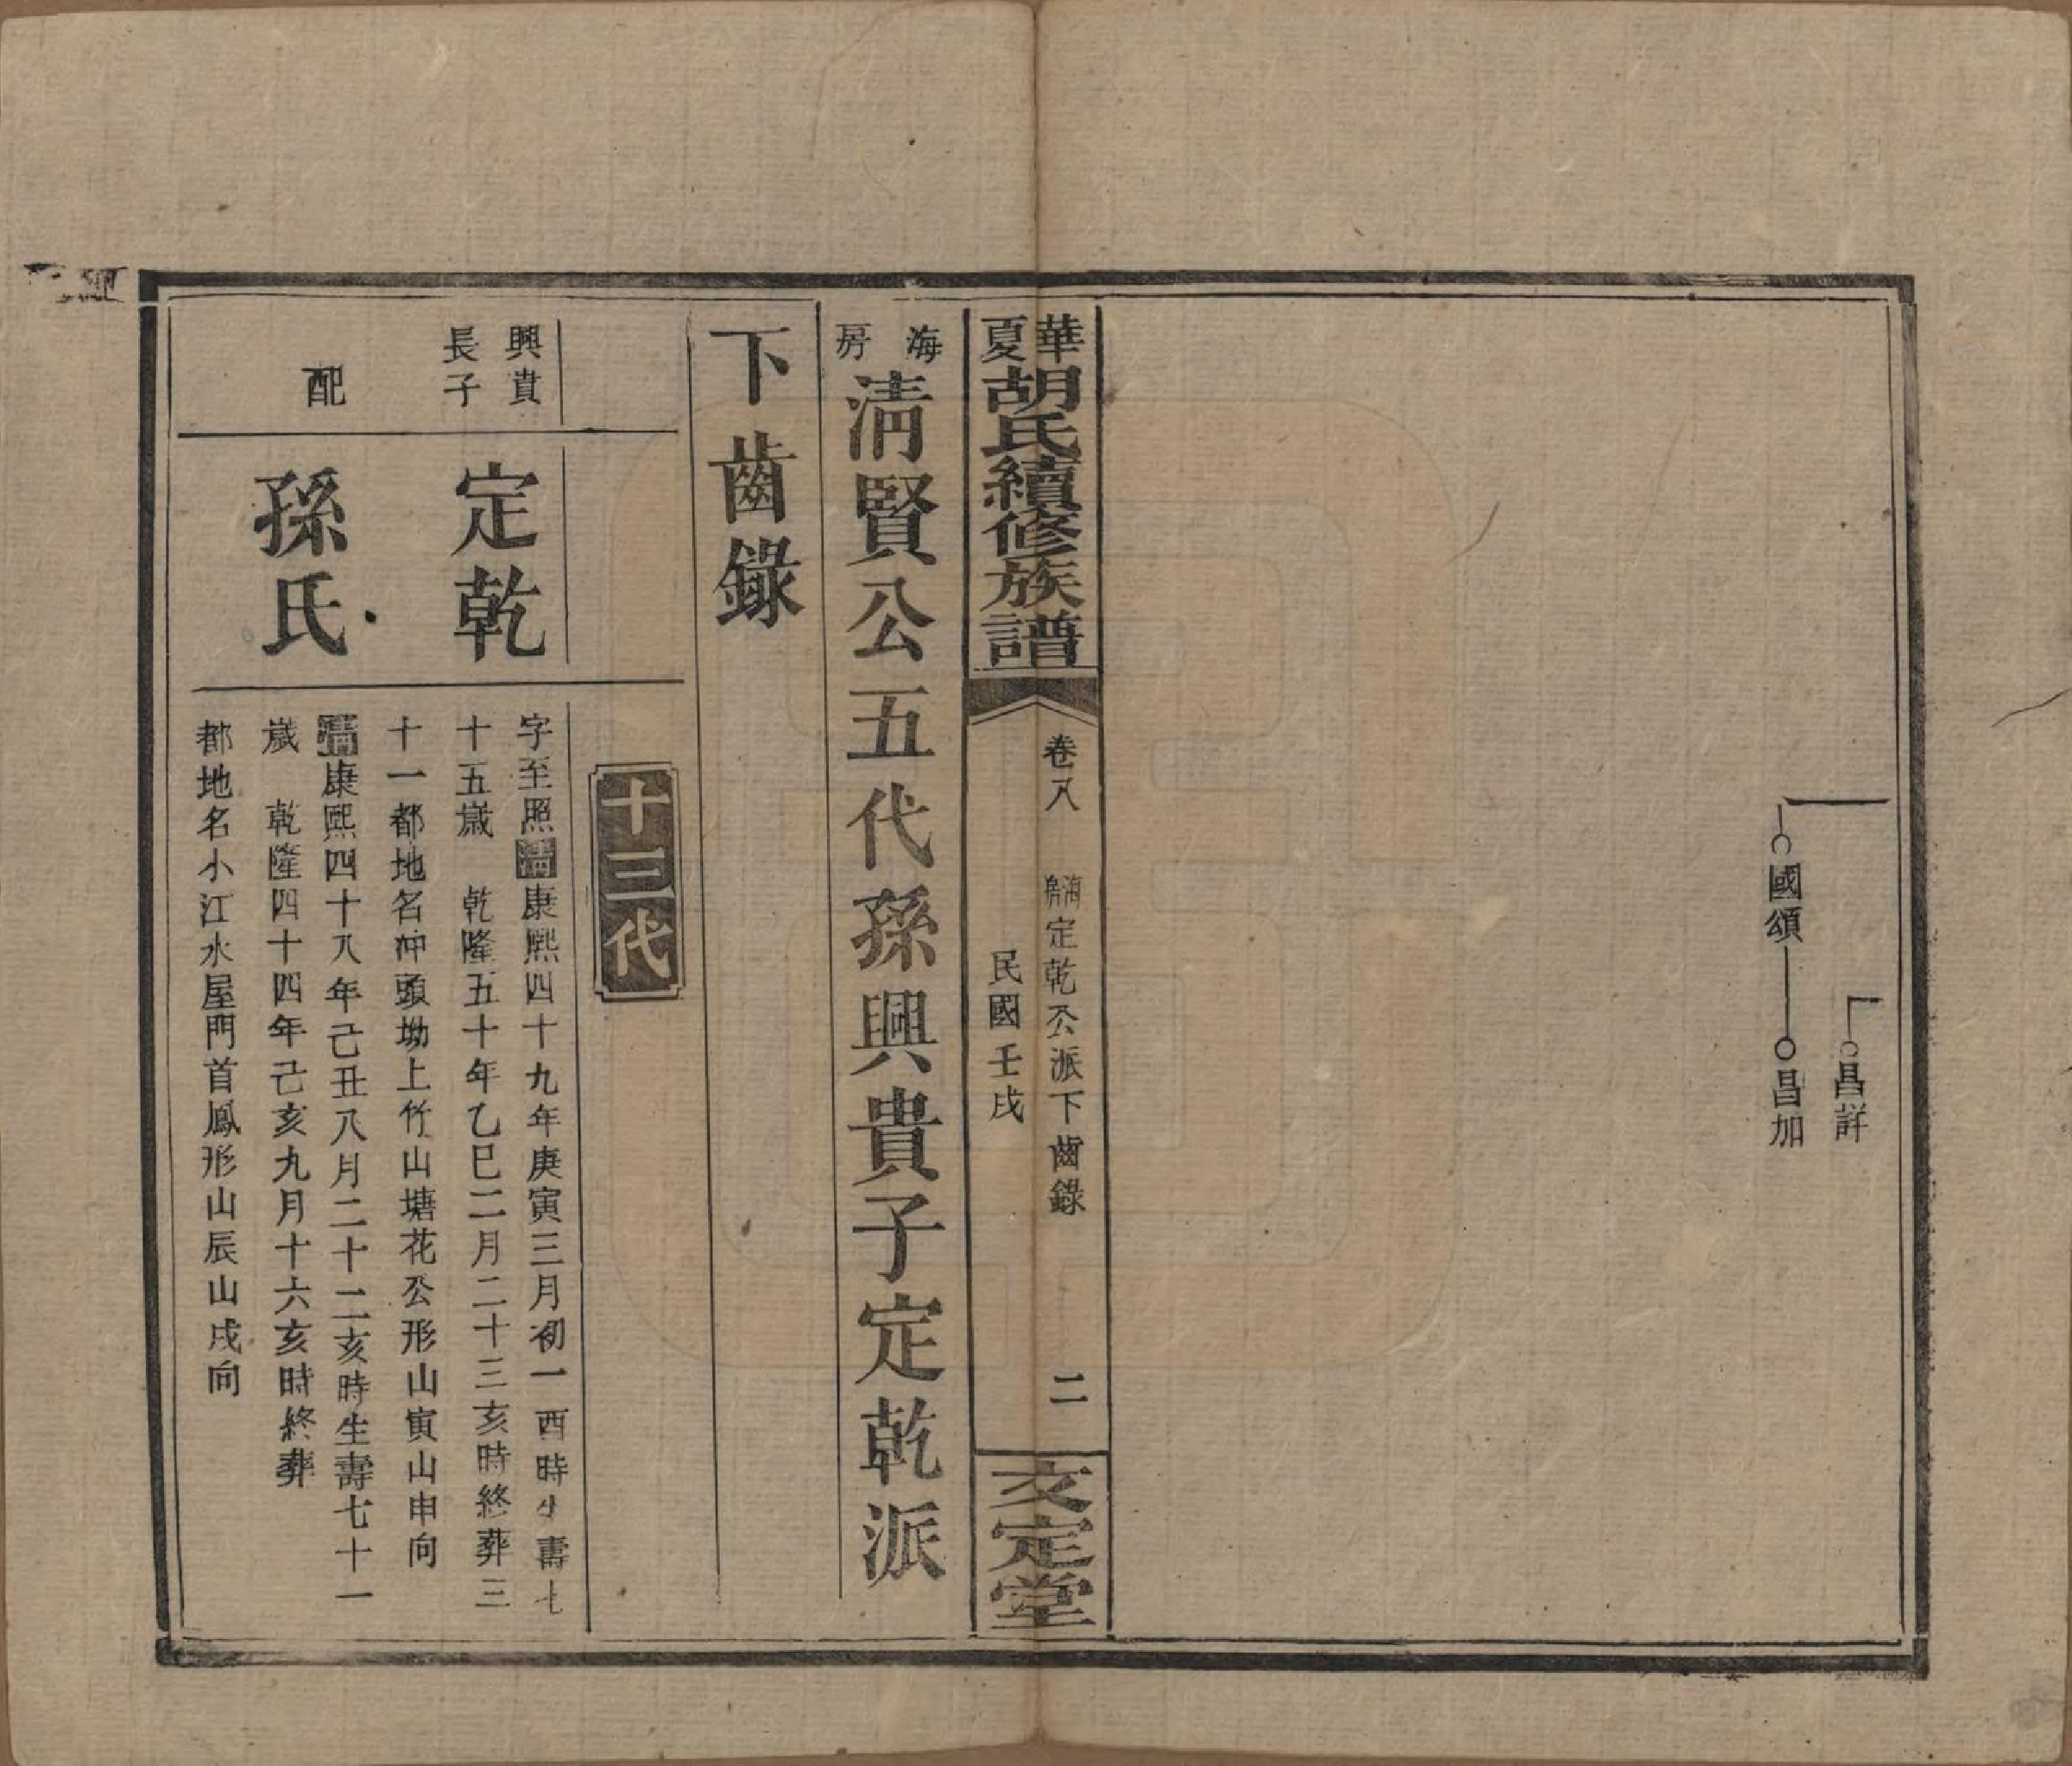 昌詳
國頌 昌加
華夏胡氏續修族譜
卷八 海房定乾公派下齒錄 二
民國壬戌
文定堂
海房淸賢公五代孫興貴子定乾派
下齒錄
十三代
興貴
長子
定乾
字至照淸康熙四十九年庚寅三月初一酉時生壽七
十五歲 乾隆五十年乙巳二月二十三亥時終葬三
十一都地名冲頭坳上竹山塘花公形山寅山申向
配
孫氏
淸康熙四十八年己丑八月二十二亥時生壽七十一
歲 乾隆四十四年己亥九月十六亥時終葬
都地名小江水屋門首鳳形山辰山戌向